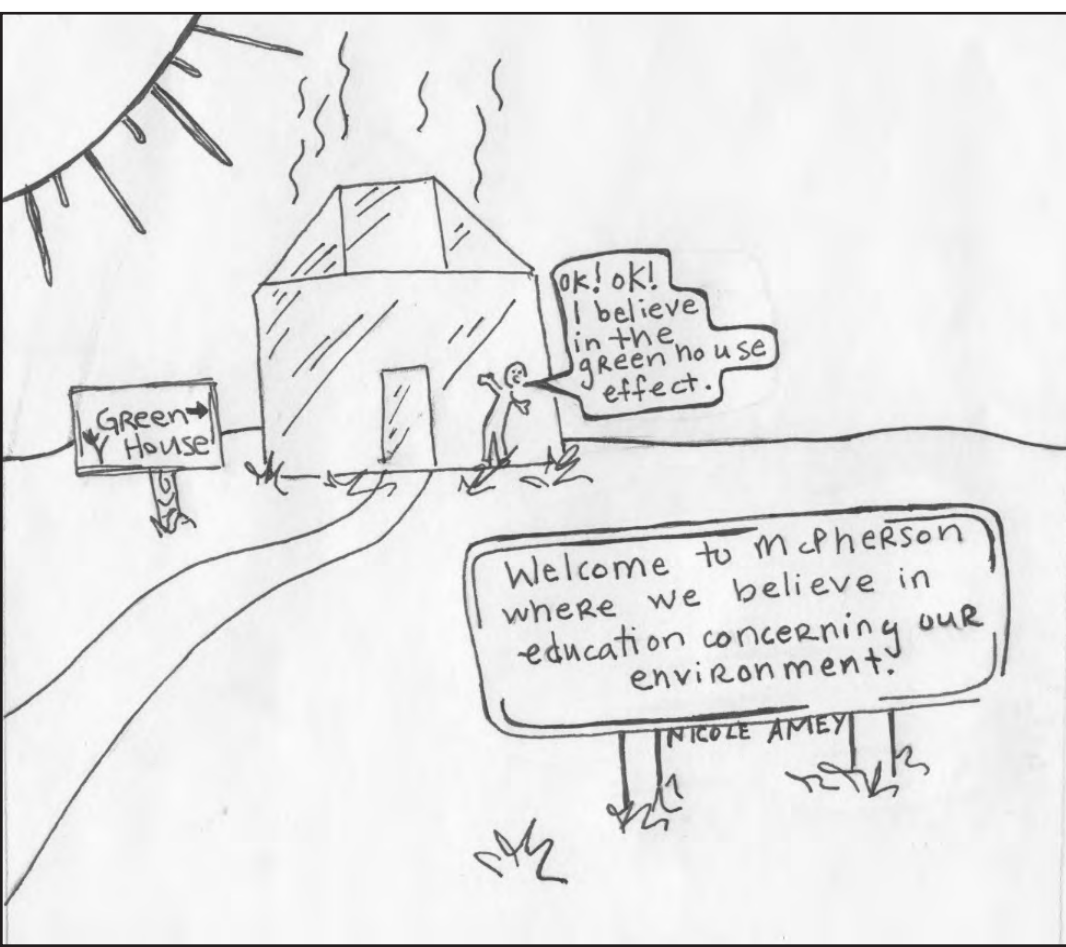 OK! OK!
I believe
in the
green house
effect.
Green
House
Welcome to McPherson
where we believe in
education concerning our
environment.
NICOLE AMEY